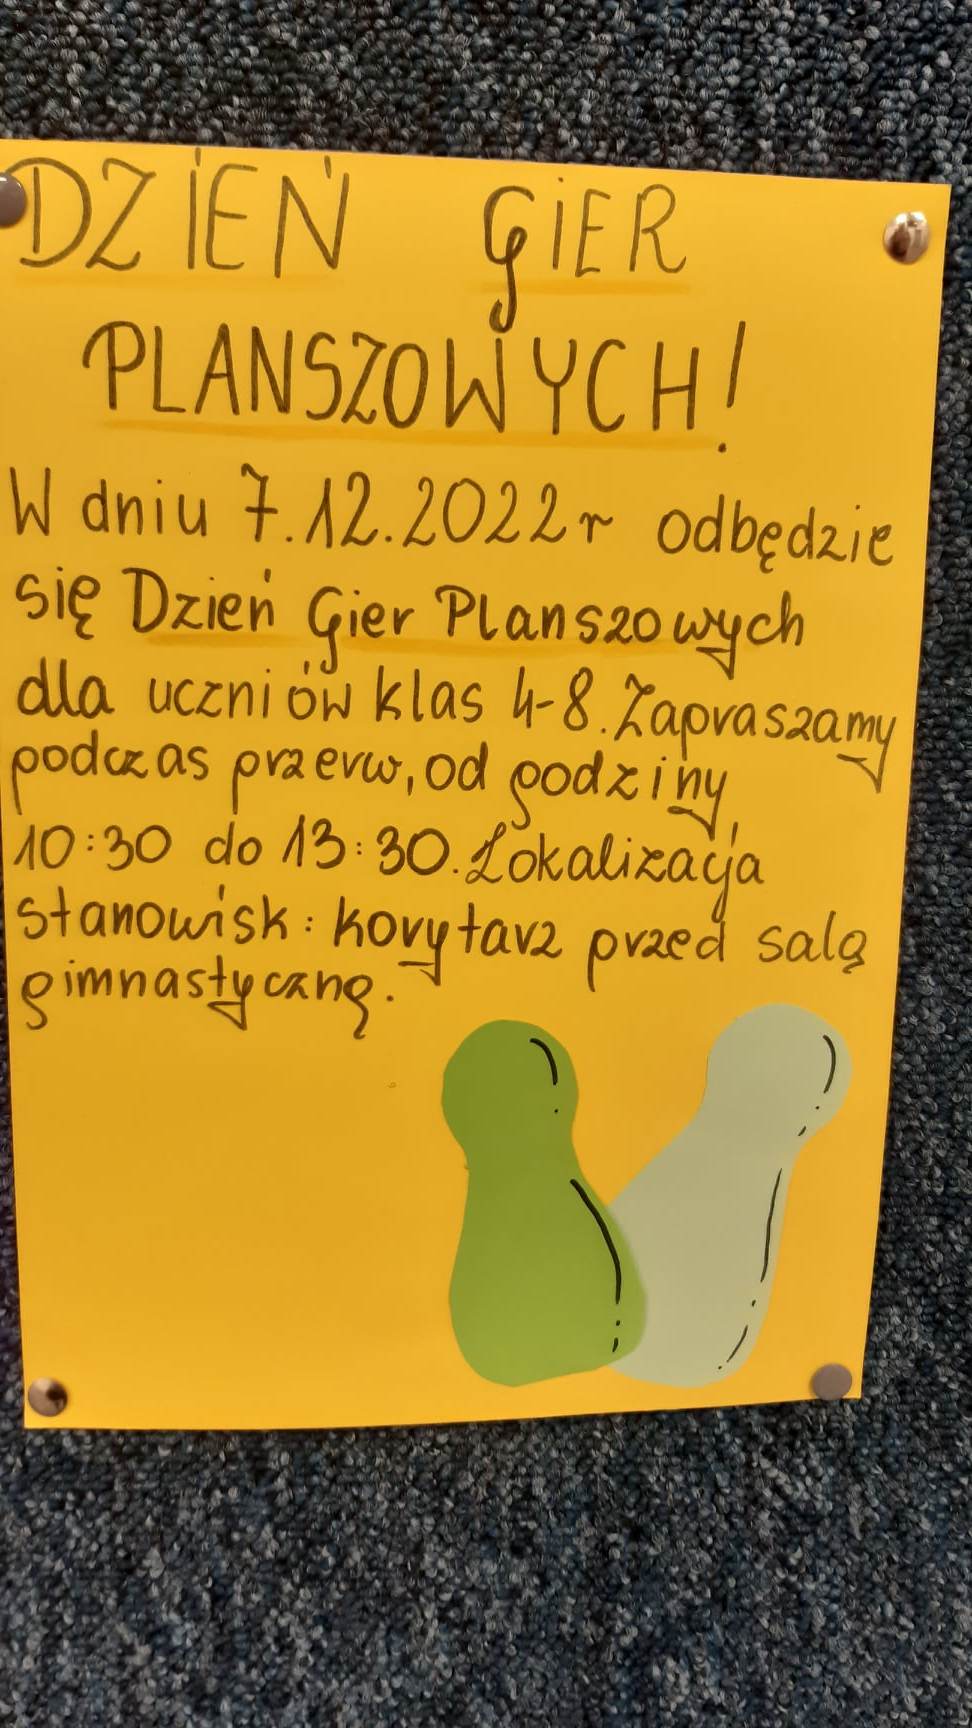 DZIEŃ GIER
PLANSZOWYCH!
W dniu 7.12.2022r odbędzie
się Dzień Gier Planszowych
dla uczniów klas 4-8. Zapraszamy
podczas przerw, od godziny
10:30 do 13:30. Lokalizacja
stanowisk: korytarz przed salą
gimnastyczną.